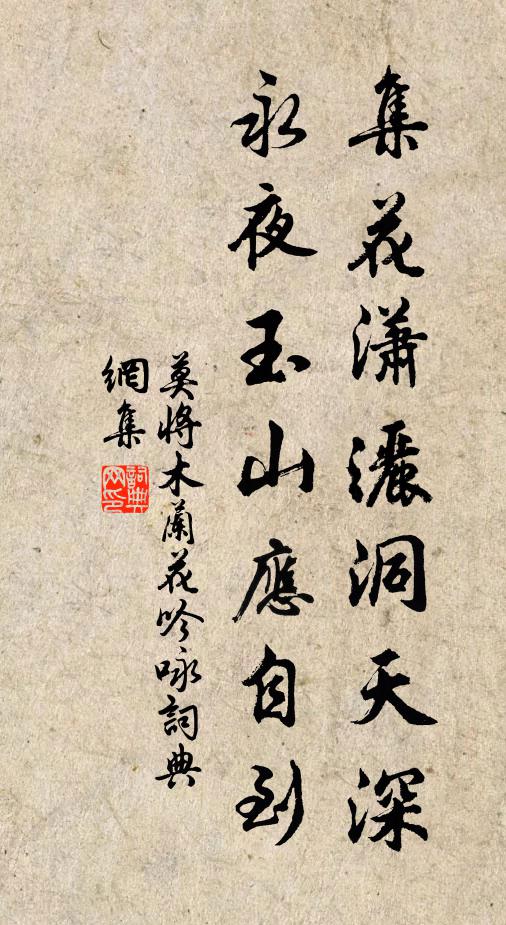 集花瀟灑洞天深
永夜玉山應自到
莫將木蘭花吟咏詞典
網集
詞典
网印